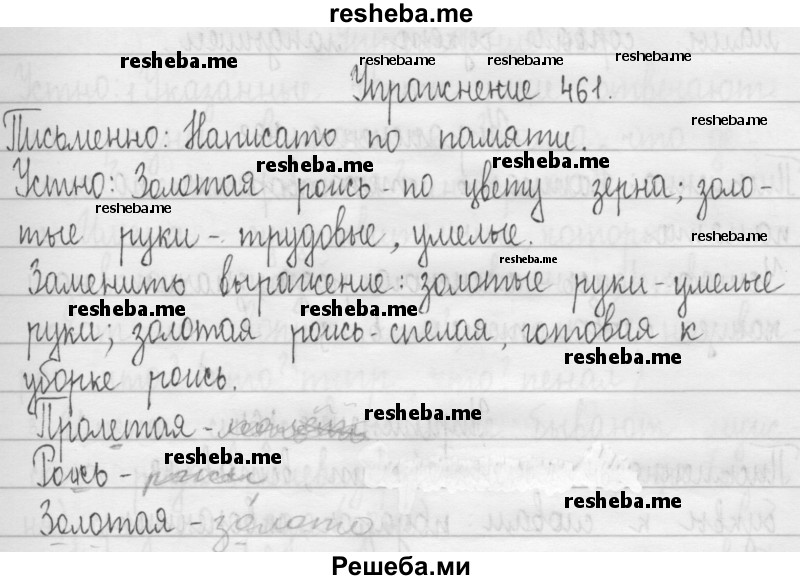 resheba.me
resheba.me resheba.me resheba.me resheba.me
Упражнение 461.
resheba.me
Письменно: Написать по памяти.
resheba.me resheba.me
Устно: Золотая рожь - по цвету зерна; золо-
resheba.me
тые руки - трудовые, умелые.
resheba.me
resheba.me
Заменить выражение: золотые руки - умелые
resheba.me resheba.me
руки; золотая рожь - спелая, готовая к
resheba.me
уборке рожь.
resheba.me
Пролетая -
resheba.me
Рожь -
resheba.me
Золотая - золото
Решеба.ми